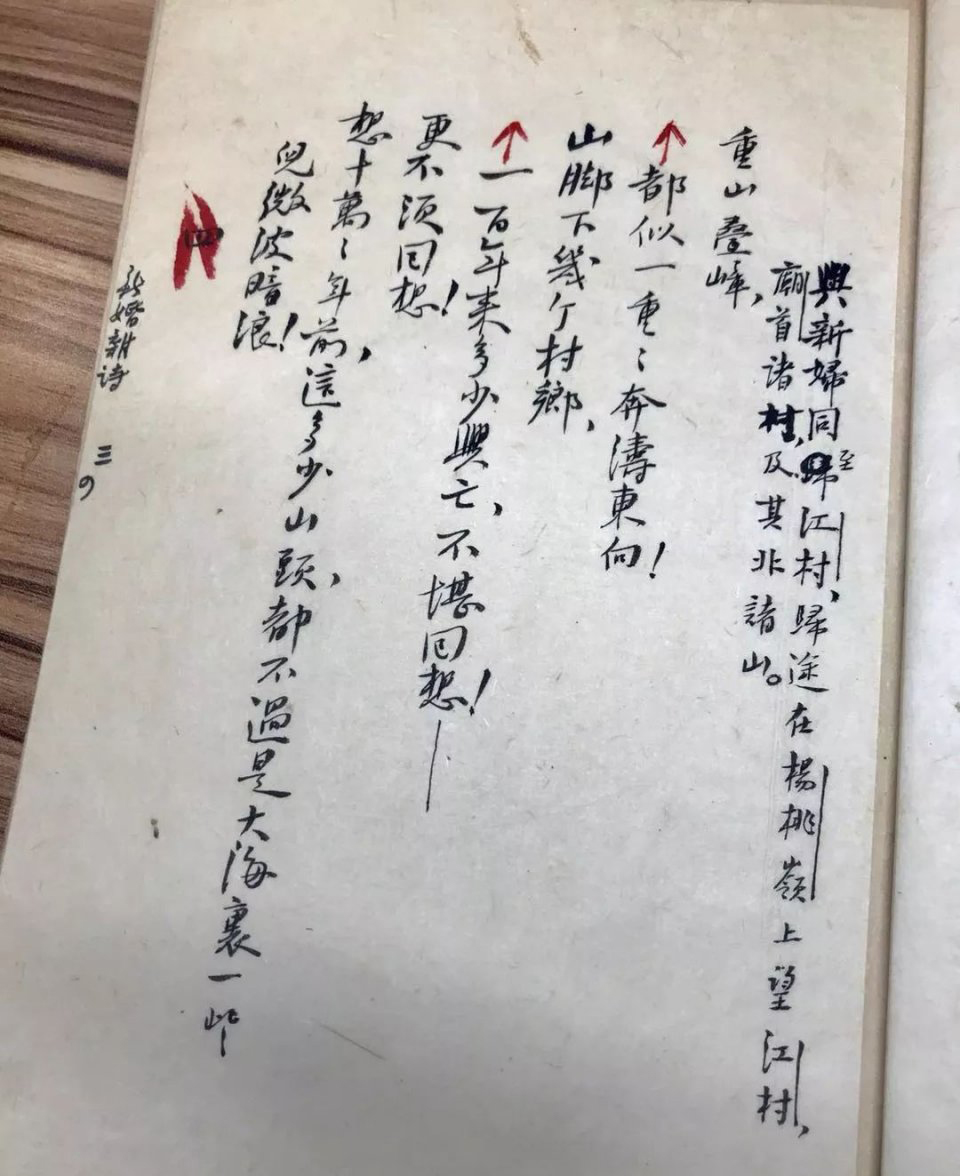 與新婦同至江村,歸途在楊桃嶺上望江村,
廟首諸村,及其北諸山。
重山叠嶂,
↑都似一重〻奔濤東向!
山脚下幾个村鄉,
↑一百年来多少興亡,不堪囘想!——
更不須囘想!
想十萬〻年前,這多少山頭,都不過是大海裏一些
兒微波暗浪!
(四)
新婚雜詩 三